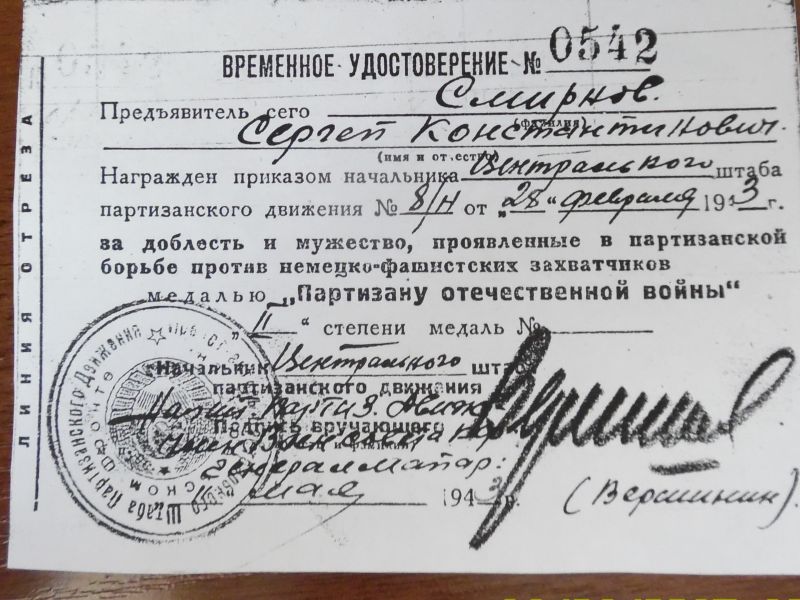 ВРЕМЕННОЕ УДОСТОВЕРЕНИЕ № 0542
Предъявитель сего Смирнов.
(фамилия)
Сергей Константинович.
(имя и отчество)
Награжден приказом начальника Центрального штаба
партизанского движения № 8/н от „28“ февраля 1943 г.
за доблесть и мужество, проявленные в партизанской
борьбе против немецко-фашистских захватчиков
медалью „Партизану отечественной войны“
„II“ степени медаль №
Начальник Центрального штаба
партизанского движения
Подпись вручающего
Генерал майор:
мая 1943 г.
(Вершинин).
ЛИНИЯ ОТРЕЗА
Штаба Партизанского Движения